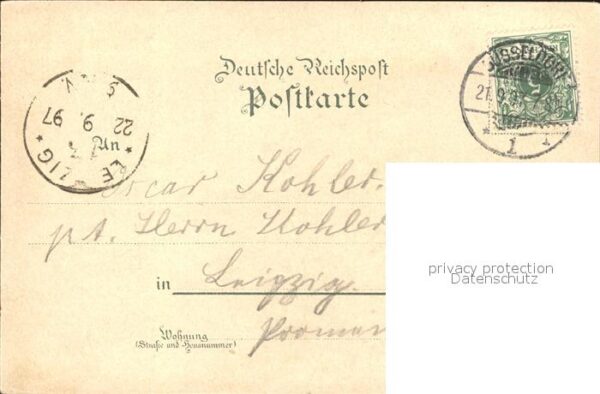 Deutsche Reichspost
Postkarte
DÜSSELDORF
21.9.97
1
LEIPZIG
22 9 97
Oscar Kohler.
pt. Herrn Kohler
in Leipzig.
Wohnung
(Straße und Hausnummer)
privacy protection
Datenschutz